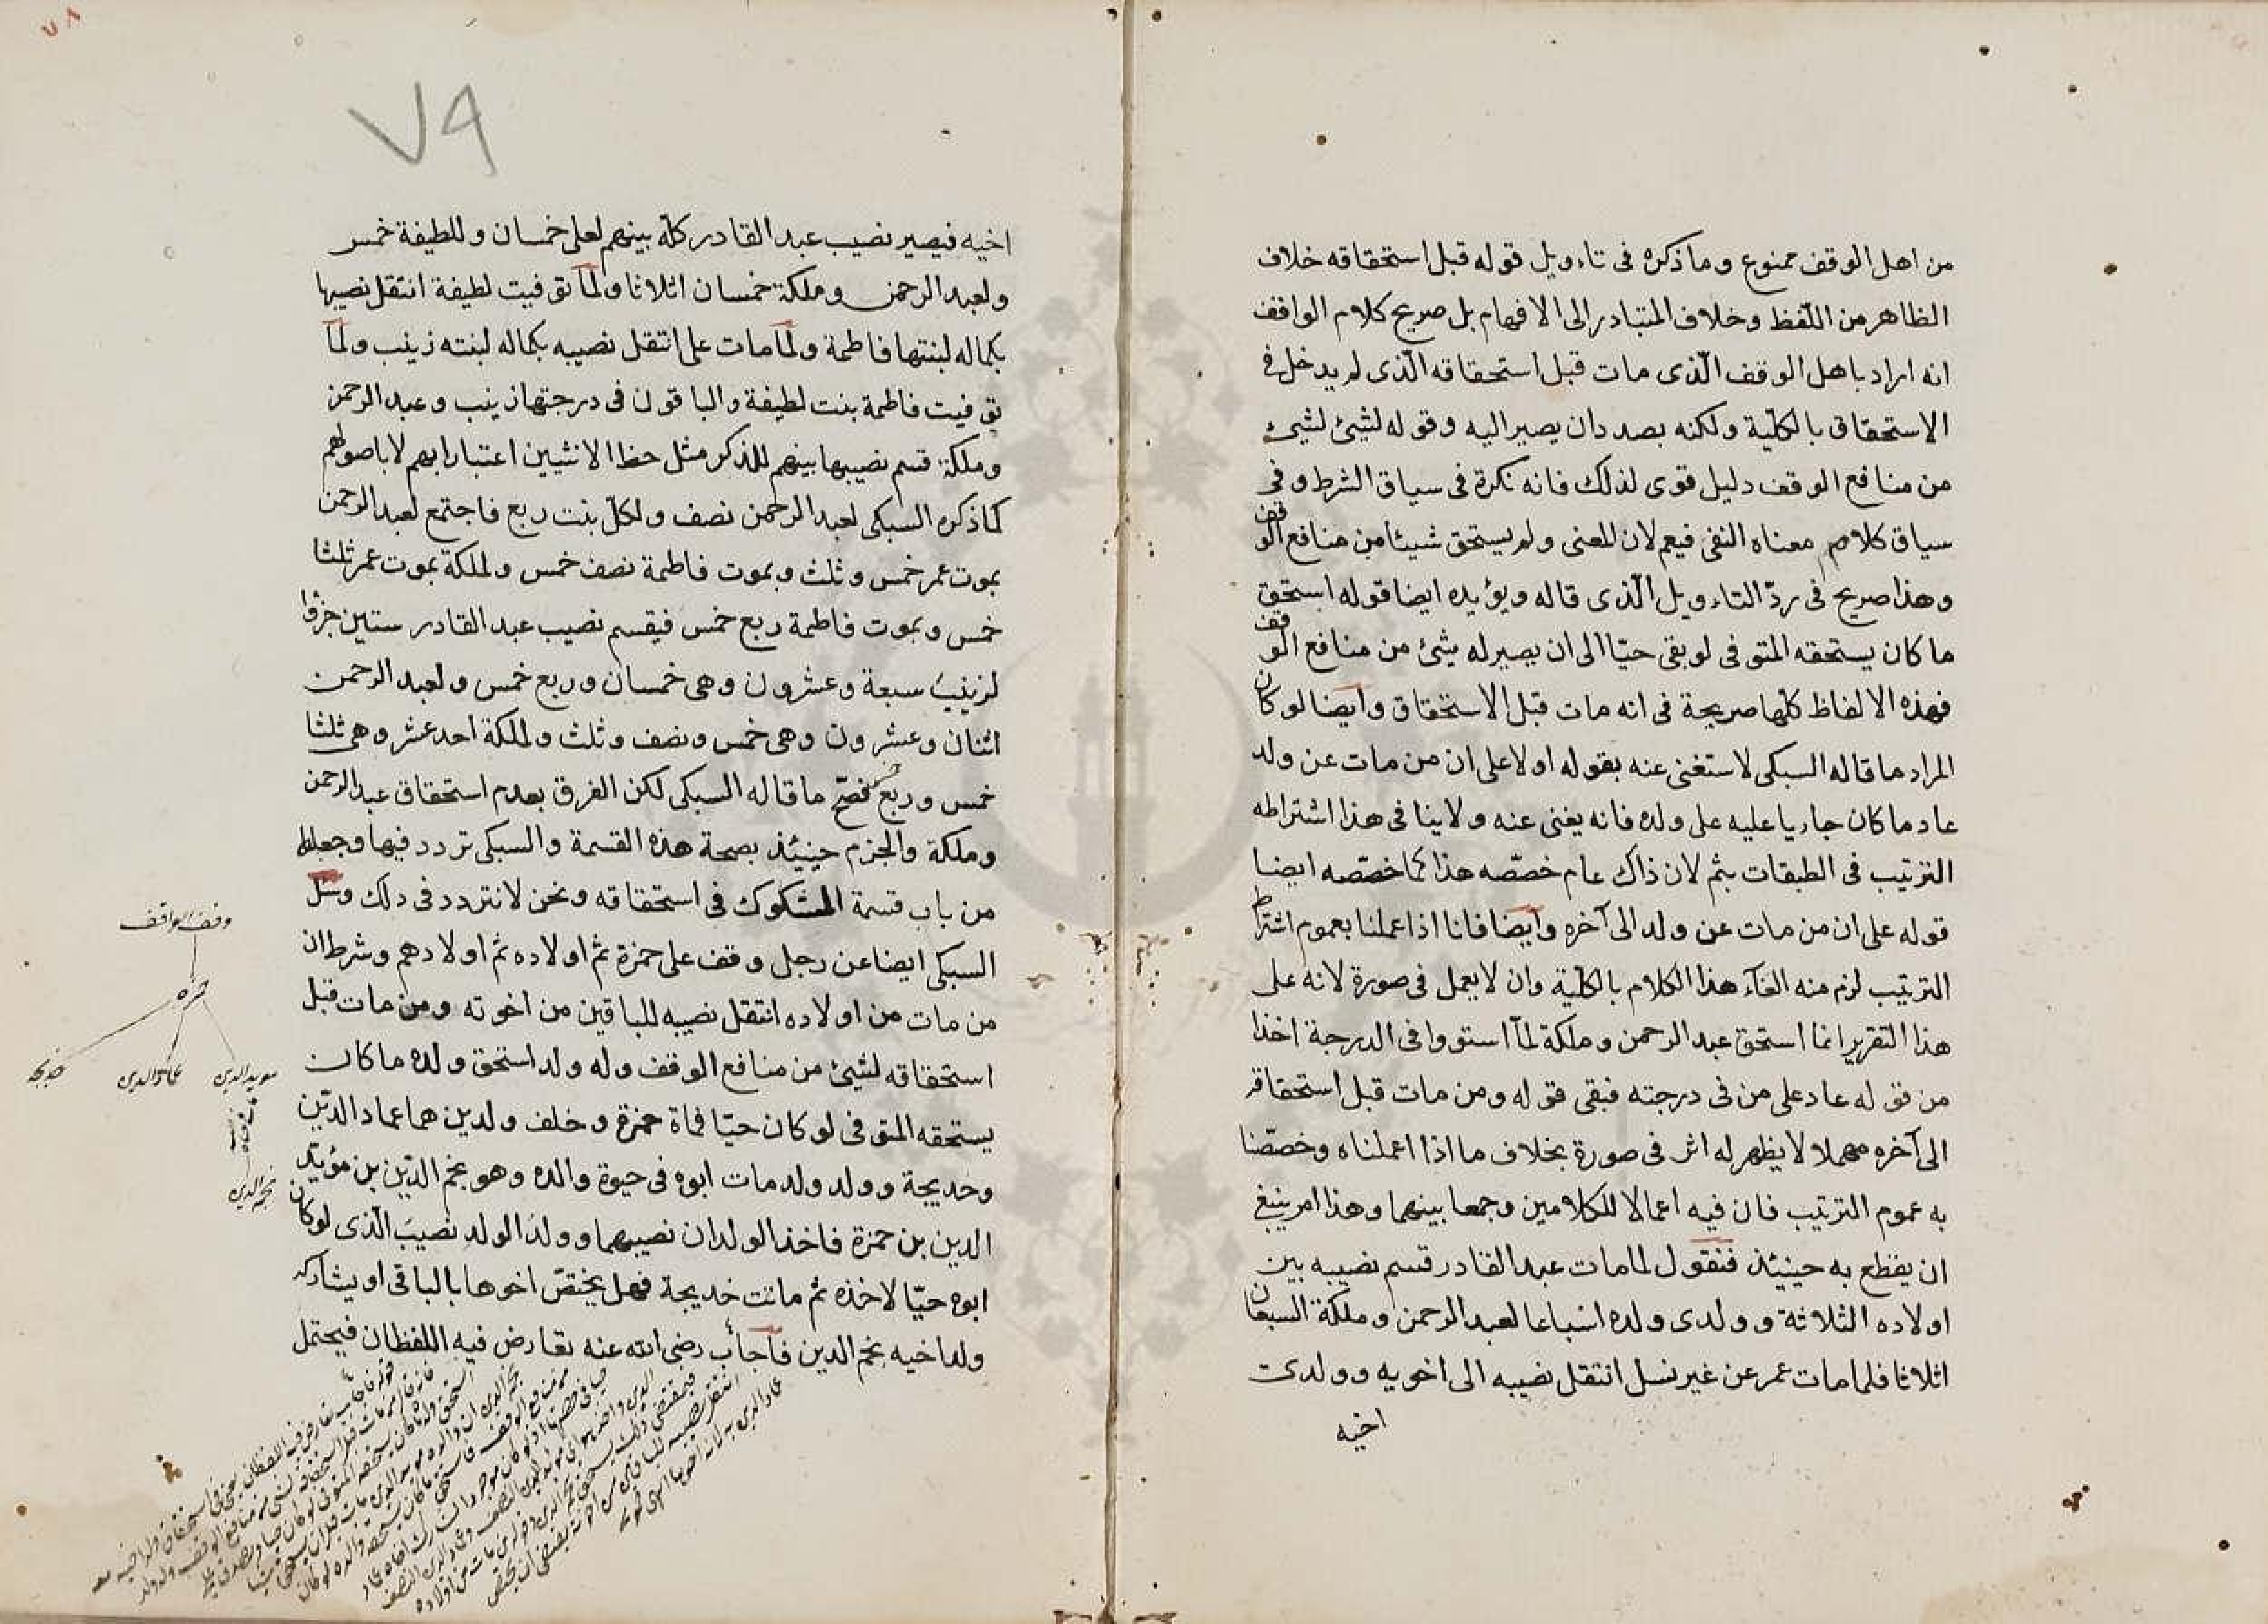 من اهل الوقف ممنوع وما ذكره فى تاءويل قوله قبل استحقاقه خلاف
الظاهر من اللفظ وخلاف المتبادر الى الافهام بل صريح كلام الواقف
انه اراد باهل الوقف الّذى مات قبل استحقاقه الّذى لم يدخل فى
الاستحقاق بالكلّية ولكنه بصدد ان يصير اليه وقوله لشيئ لشيئ
من منافع الوقف دليل قوى لذلك فانه نكرة فى سياق الشرط وفى
سياق كلام معناه النفى فيعم لان المعنى ولم يستحق شيئا من منافع الوقف
وهذا صريح فى ردّ التاءويل الّذى قاله ويؤيده ايضا قوله استحق
ما كان يستحقه المتوفى لو بقى حيّا الى ان يصير له شيئ من منافع الوقف
فهذه الالفاظ كلّها صريحة فى انه مات قبل الاستحقاق وايضا لو كان
المراد ما قاله السبكى لاستغنى عنه بقوله اولا على ان من مات عن ولد
عاد ما كان جاريا عليه على ولده فانه يغنى عنه ولا ينافى هذا اشتراطه
الترتيب فى الطبقات بثم لان ذاك عام خصّصه هذا كما خصّصه ايضا
قوله على ان من مات عن ولد الى آخره وايضا فانا اذا عملنا بعموم اشتراط
الترتيب لزم منه الغآء هذا الكلام بالكلّية وان لا يعمل فى صورة لانه على
هذا التقرير انما استحق عبد الرحمن وملكة لمّا استووا فى الدرجة اخذا
من قوله عاد على من فى درجته فبقى قوله ومن مات قبل استحقاقه
الى آخره مهملا لا يظهر له اثر فى صورة بخلاف ما اذا اعملناه وخصّصنا
به عموم الترتيب فان فيه اعمالا للكلامين وجمعا بينهما وهذا امر ينبغى
ان يقطع به حينئذ فنقول لما مات عبد القادر قسم نصيبه بين
اولاده الثلاثة وولدى ولده اسباعا لعبد الرحمن وملكة السبعان
اثلاثا فلما مات عمر عن غير نسل انتقل نصيبه الى اخويه وولدى
اخيه
٧٨
٧٩
اخيه فيصير نصيب عبد القادر كلّه بينهم لعلى خمسان وللطيفة خمس
ولعبد الرحمن وملكة خمسان اثلاثا ولمّا توفيت لطيفة انتقل نصيبها
بكماله لبنتها فاطمة ولمّا مات على انتقل نصيبه بكماله لبنته زينب ولمّا
توفيت فاطمة بنت لطيفة والباقون فى درجتها زينب وعبد الرحمن
وملكة قسم نصيبها بينهم للذكر مثل حظ الانثيين اعتبارا بهم لا باصولهم
كما ذكره السبكى لعبد الرحمن نصف ولكلّ بنت ربع فاجتمع لعبد الرحمن
بموت عمر خمس وثلث وبموت فاطمة نصف خمس ولملكة بموت عمر ثلثا
خمس وبموت فاطمة ربع خمس فيقسم نصيب عبد القادر ستين جزؤا
لزينب سبعة وعشرون وهى خمسان وربع خمس ولعبد الرحمن
اثنان وعشرون وهى خمس ونصف وثلث ولملكة احد عشر وهى ثلثا
خمس وربع خمس فصحّ ما قاله السبكى لكن الفرق بعدم استحقاق عبد الرحمن
وملكة والجزم حينئذ بصحة هذه القسمة والسبكى تردد فيها وجعلها
من باب قسمة المشكوك فى استحقاقه ونحن لا نتردد فى ذلك وسئل
السبكى ايضا عن رجل وقف على حمزة ثم اولاده ثم اولادهم وشرط ان
من مات من اولاده انتقل نصيبه للباقين من اخوته ومن مات قبل
استحقاقه لشيئ من منافع الوقف وله ولد استحق ولده ما كان
يستحقه المتوفى لو كان حيّا فماة حمزة وخلف ولدين هما عماد الدّين
وخديجة وولد ولد مات ابوه فى حيوة والده وهو نجم الدّين بن مؤيّد
الدين بن حمزة فاخذ الولدان نصيبهما وولد الولد نصيب الّذى لو كان
ابوه حيّا لاخذه ثم ماتت خديجة فهل يختصّ اخوها بالباقى او يشاركه
ولد اخيه نجم الدين فاجاب رضى الله عنه تعارض فيه اللفظان فيحتمل
وقف الواقف
حمزه
مويد الدين
عماد الدين
خديجه
نجم الدين